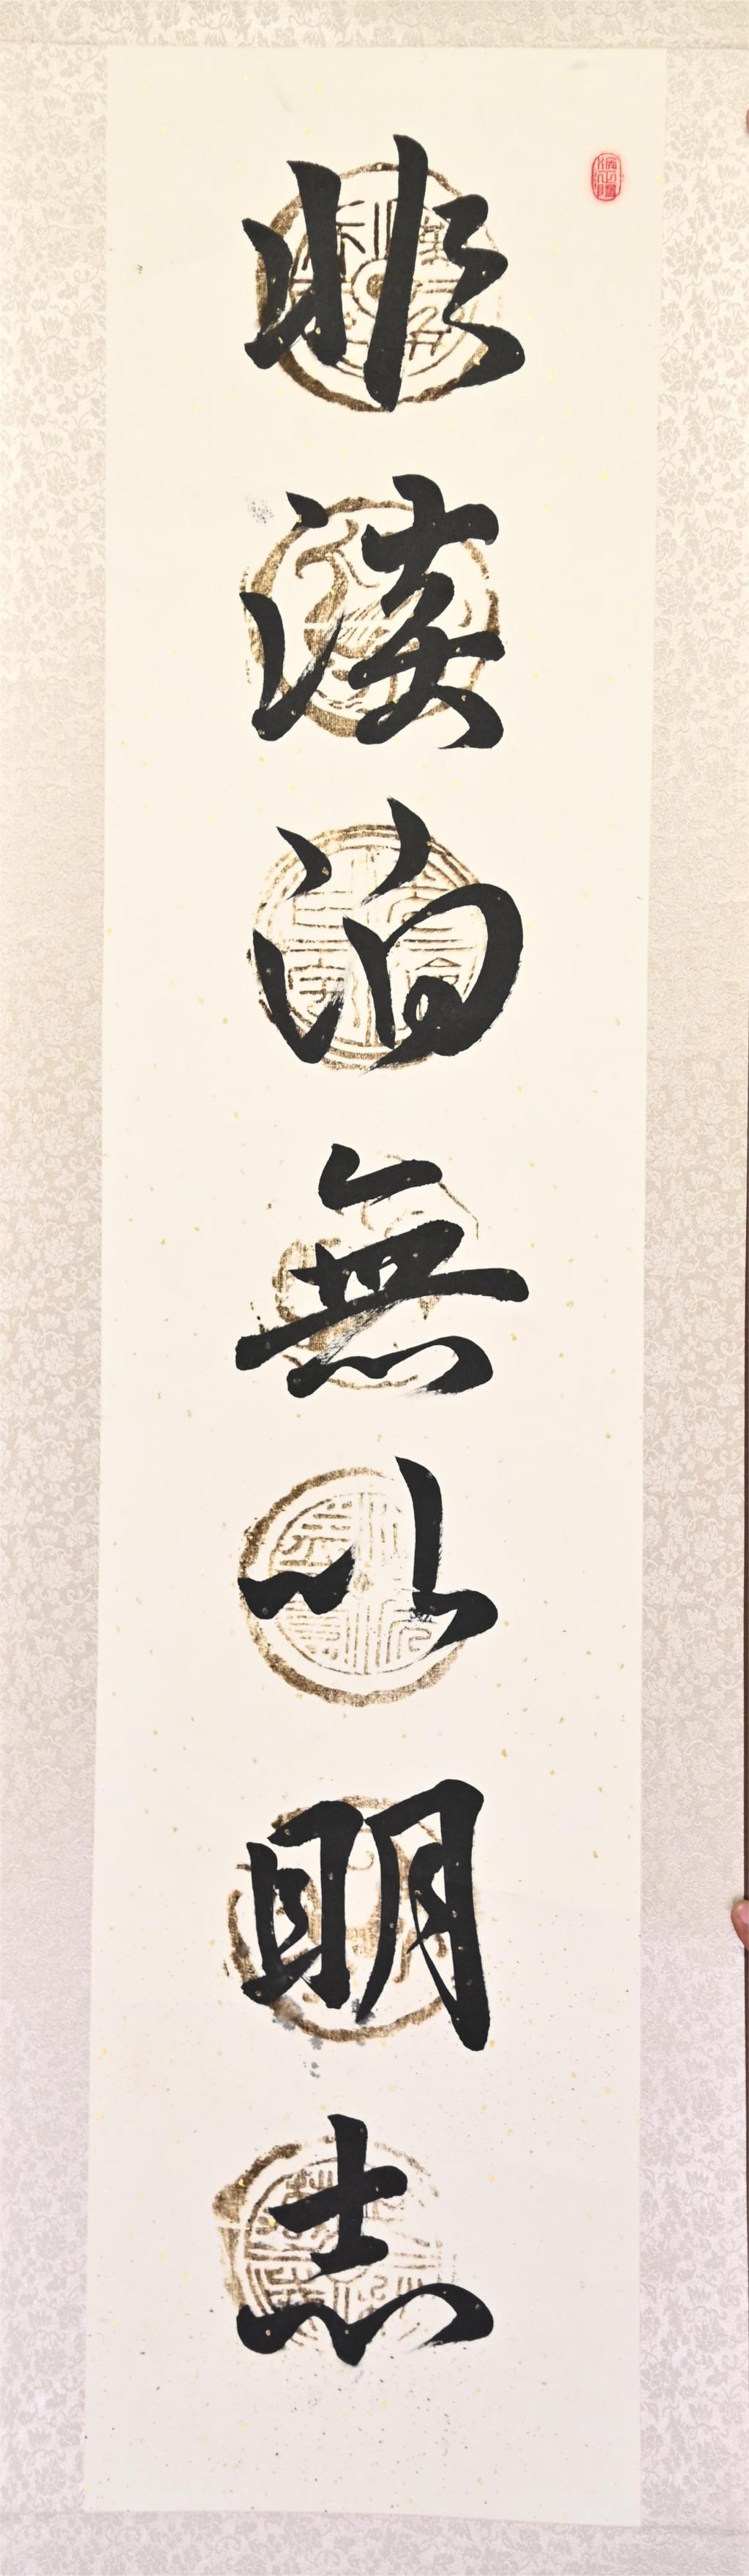 非淡泊無以明志